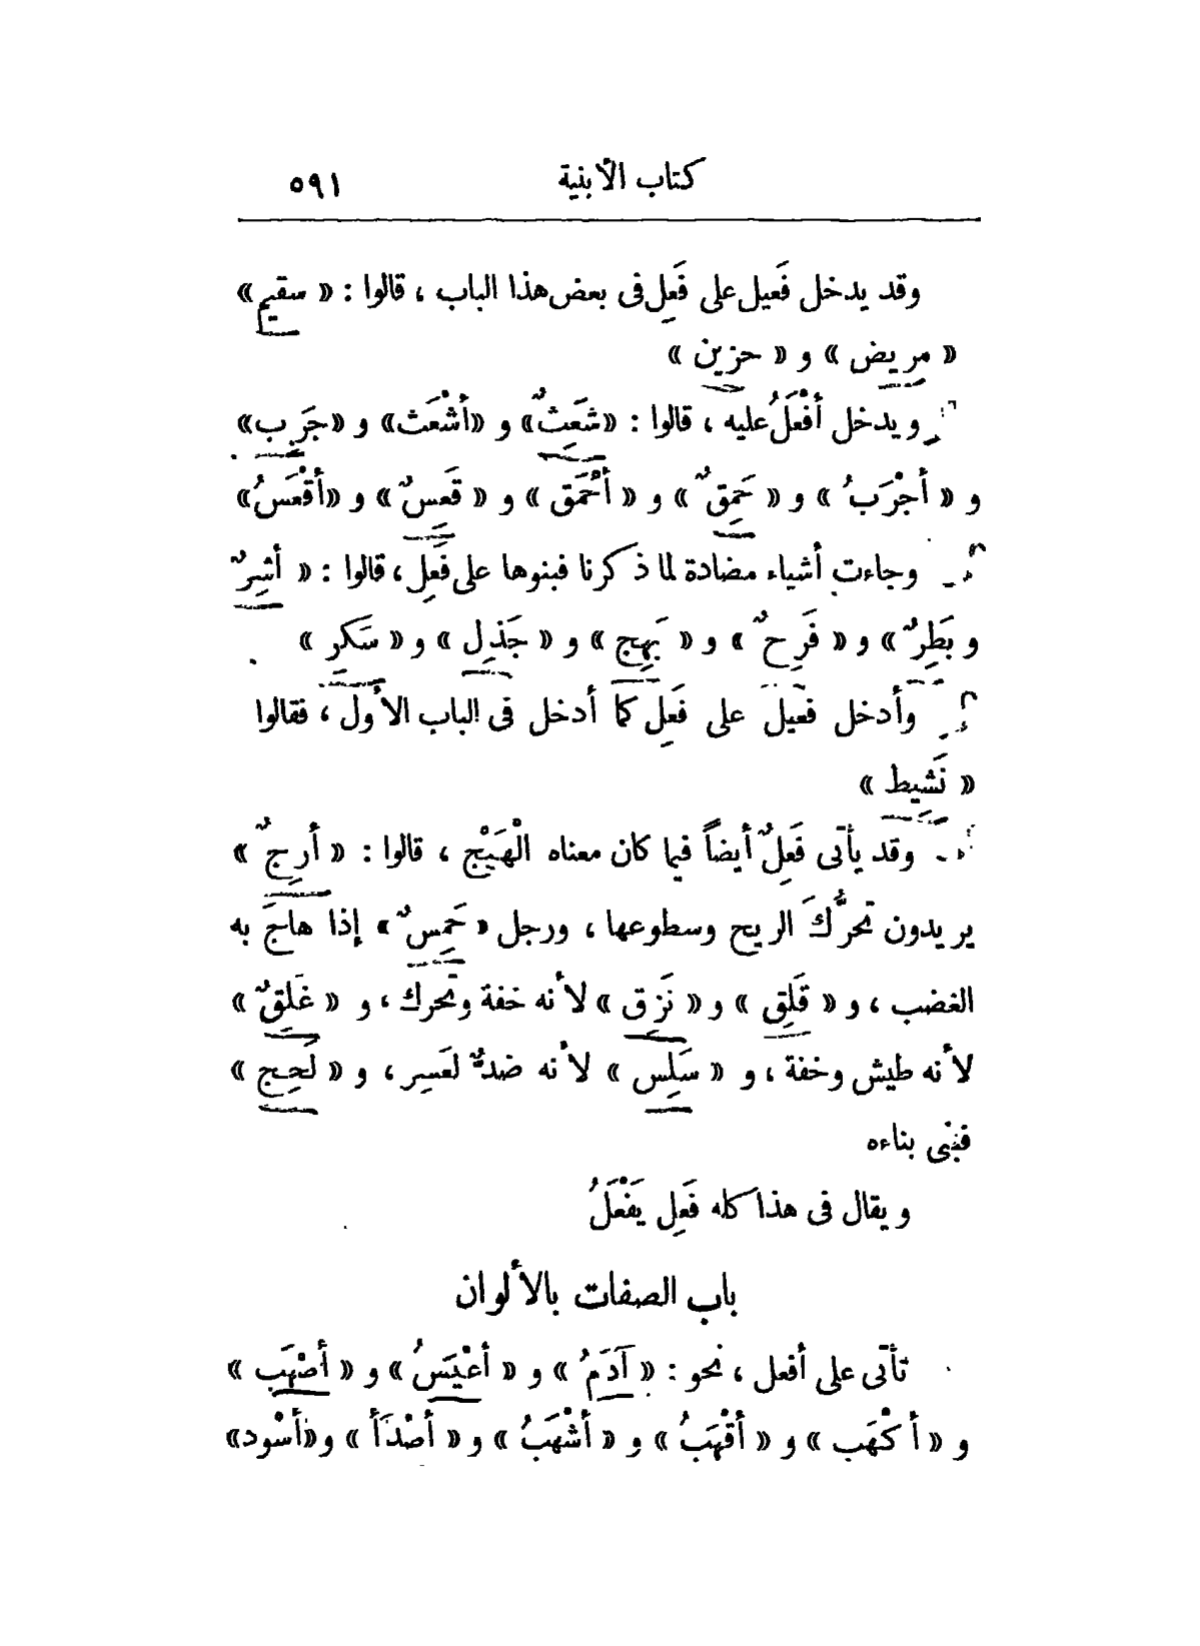 كتاب الأبنية ٥٩١
وقد يدخل فَعيل على فَعِل فى بعض هذا الباب ، قالوا : « سقيم »
« مريض » و « حزين »
ويدخل أفْعَلُ عليه ، قالوا : «شَعِثٌ» و «أشْعَث» و «جَرِب»
و « أجْرَبُ » و « حَمِقٌ » و « أحْمَق » و « قَعِسٌ » و «أقْعَسُ»
وجاءت أشياء مضادة لما ذكرنا فبنوها على فَعِل ، قالوا : « أشِرٌ
وبَطِرٌ » و « فَرِحٌ » و « بَهِج » و « جَذِل » و « سَكِر »
وأدخل فَعيل على فَعِل كما أدخل فى الباب الأول ، فقالوا
« نَشِيط »
وقد يأتى فَعِلٌ أيضاً فيما كان معناه الْهَيْج ، قالوا : « أرِجٌ »
يريدون تحرُّكَ الريح وسطوعها ، ورجل « حَمِسٌ » إذا هاجَ به
الغضب ، و « قَلِق » و « نَزِق » لأنه خفة وتحرك ، و « غَلِقٌ »
لأنه طيش وخفة ، و « سَلِس » لأنه ضدٌّ لعَسِر ، و « لَحِج »
فبُنى بناءه
ويقال فى هذا كله فَعِل يَفْعَلُ
باب الصفات بالألوان
تأتى على أفعل ، نحو : « آدَمُ » و « أعْيَسُ » و « أصْهَب »
و « أكْهَب » و « أقْهَبُ » و « أشْهَبُ » و « أصْدَأ » و«أسْود»